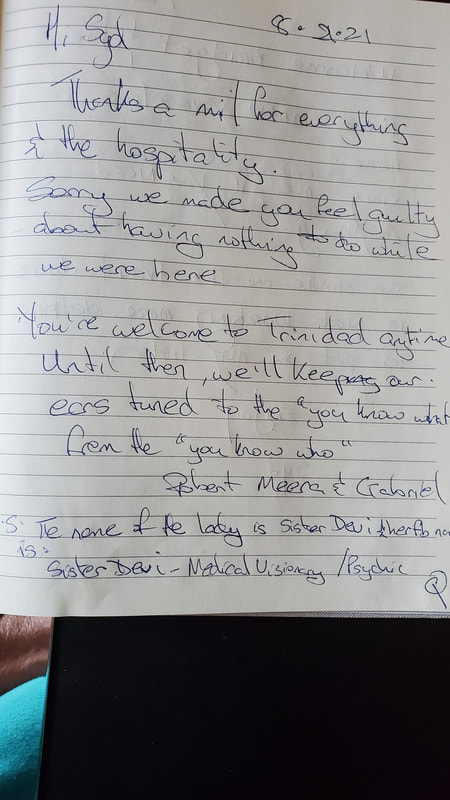 8.9.21
Hi Syd
Thanks a mil for everything
& the hospitality.
Sorry we made you feel guilty
about having nothing to do while
we were here
You're welcome to Trinidad anytime
Until then, we'll keep our
ears tuned to the "you know what
from the "you know who"
Robert Meera & Gabriel
.S. The name of the lady is Sister Devi & her fb na
is:
Sister Devi - Medical Visionary / Psychic